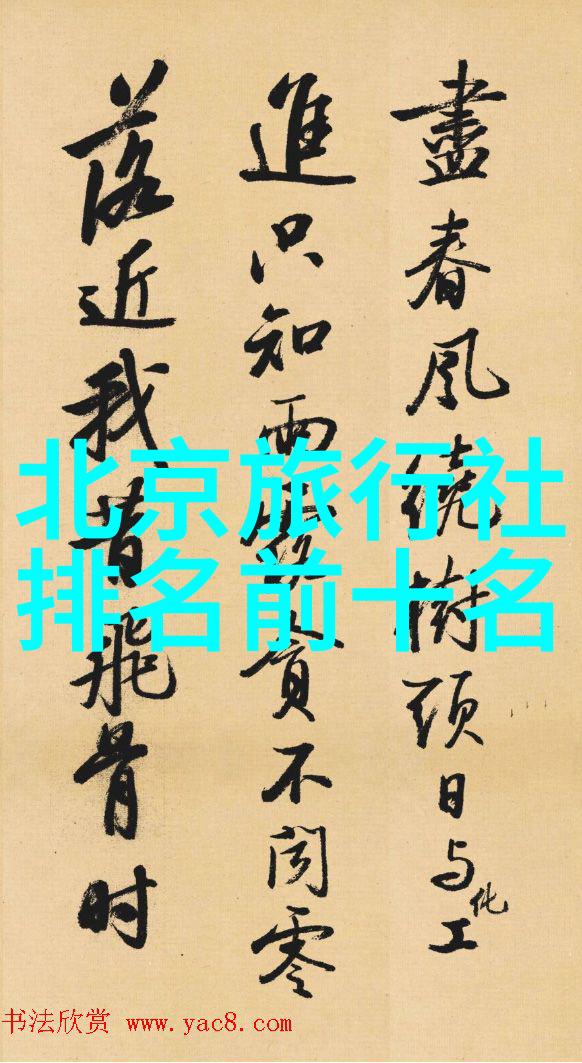 北京旅行社
排名前十名
盡春風繞樹頭日与化工
進只知雨露貪不聞零
落近我昔飛骨时
书法欣赏 www.yac8.com